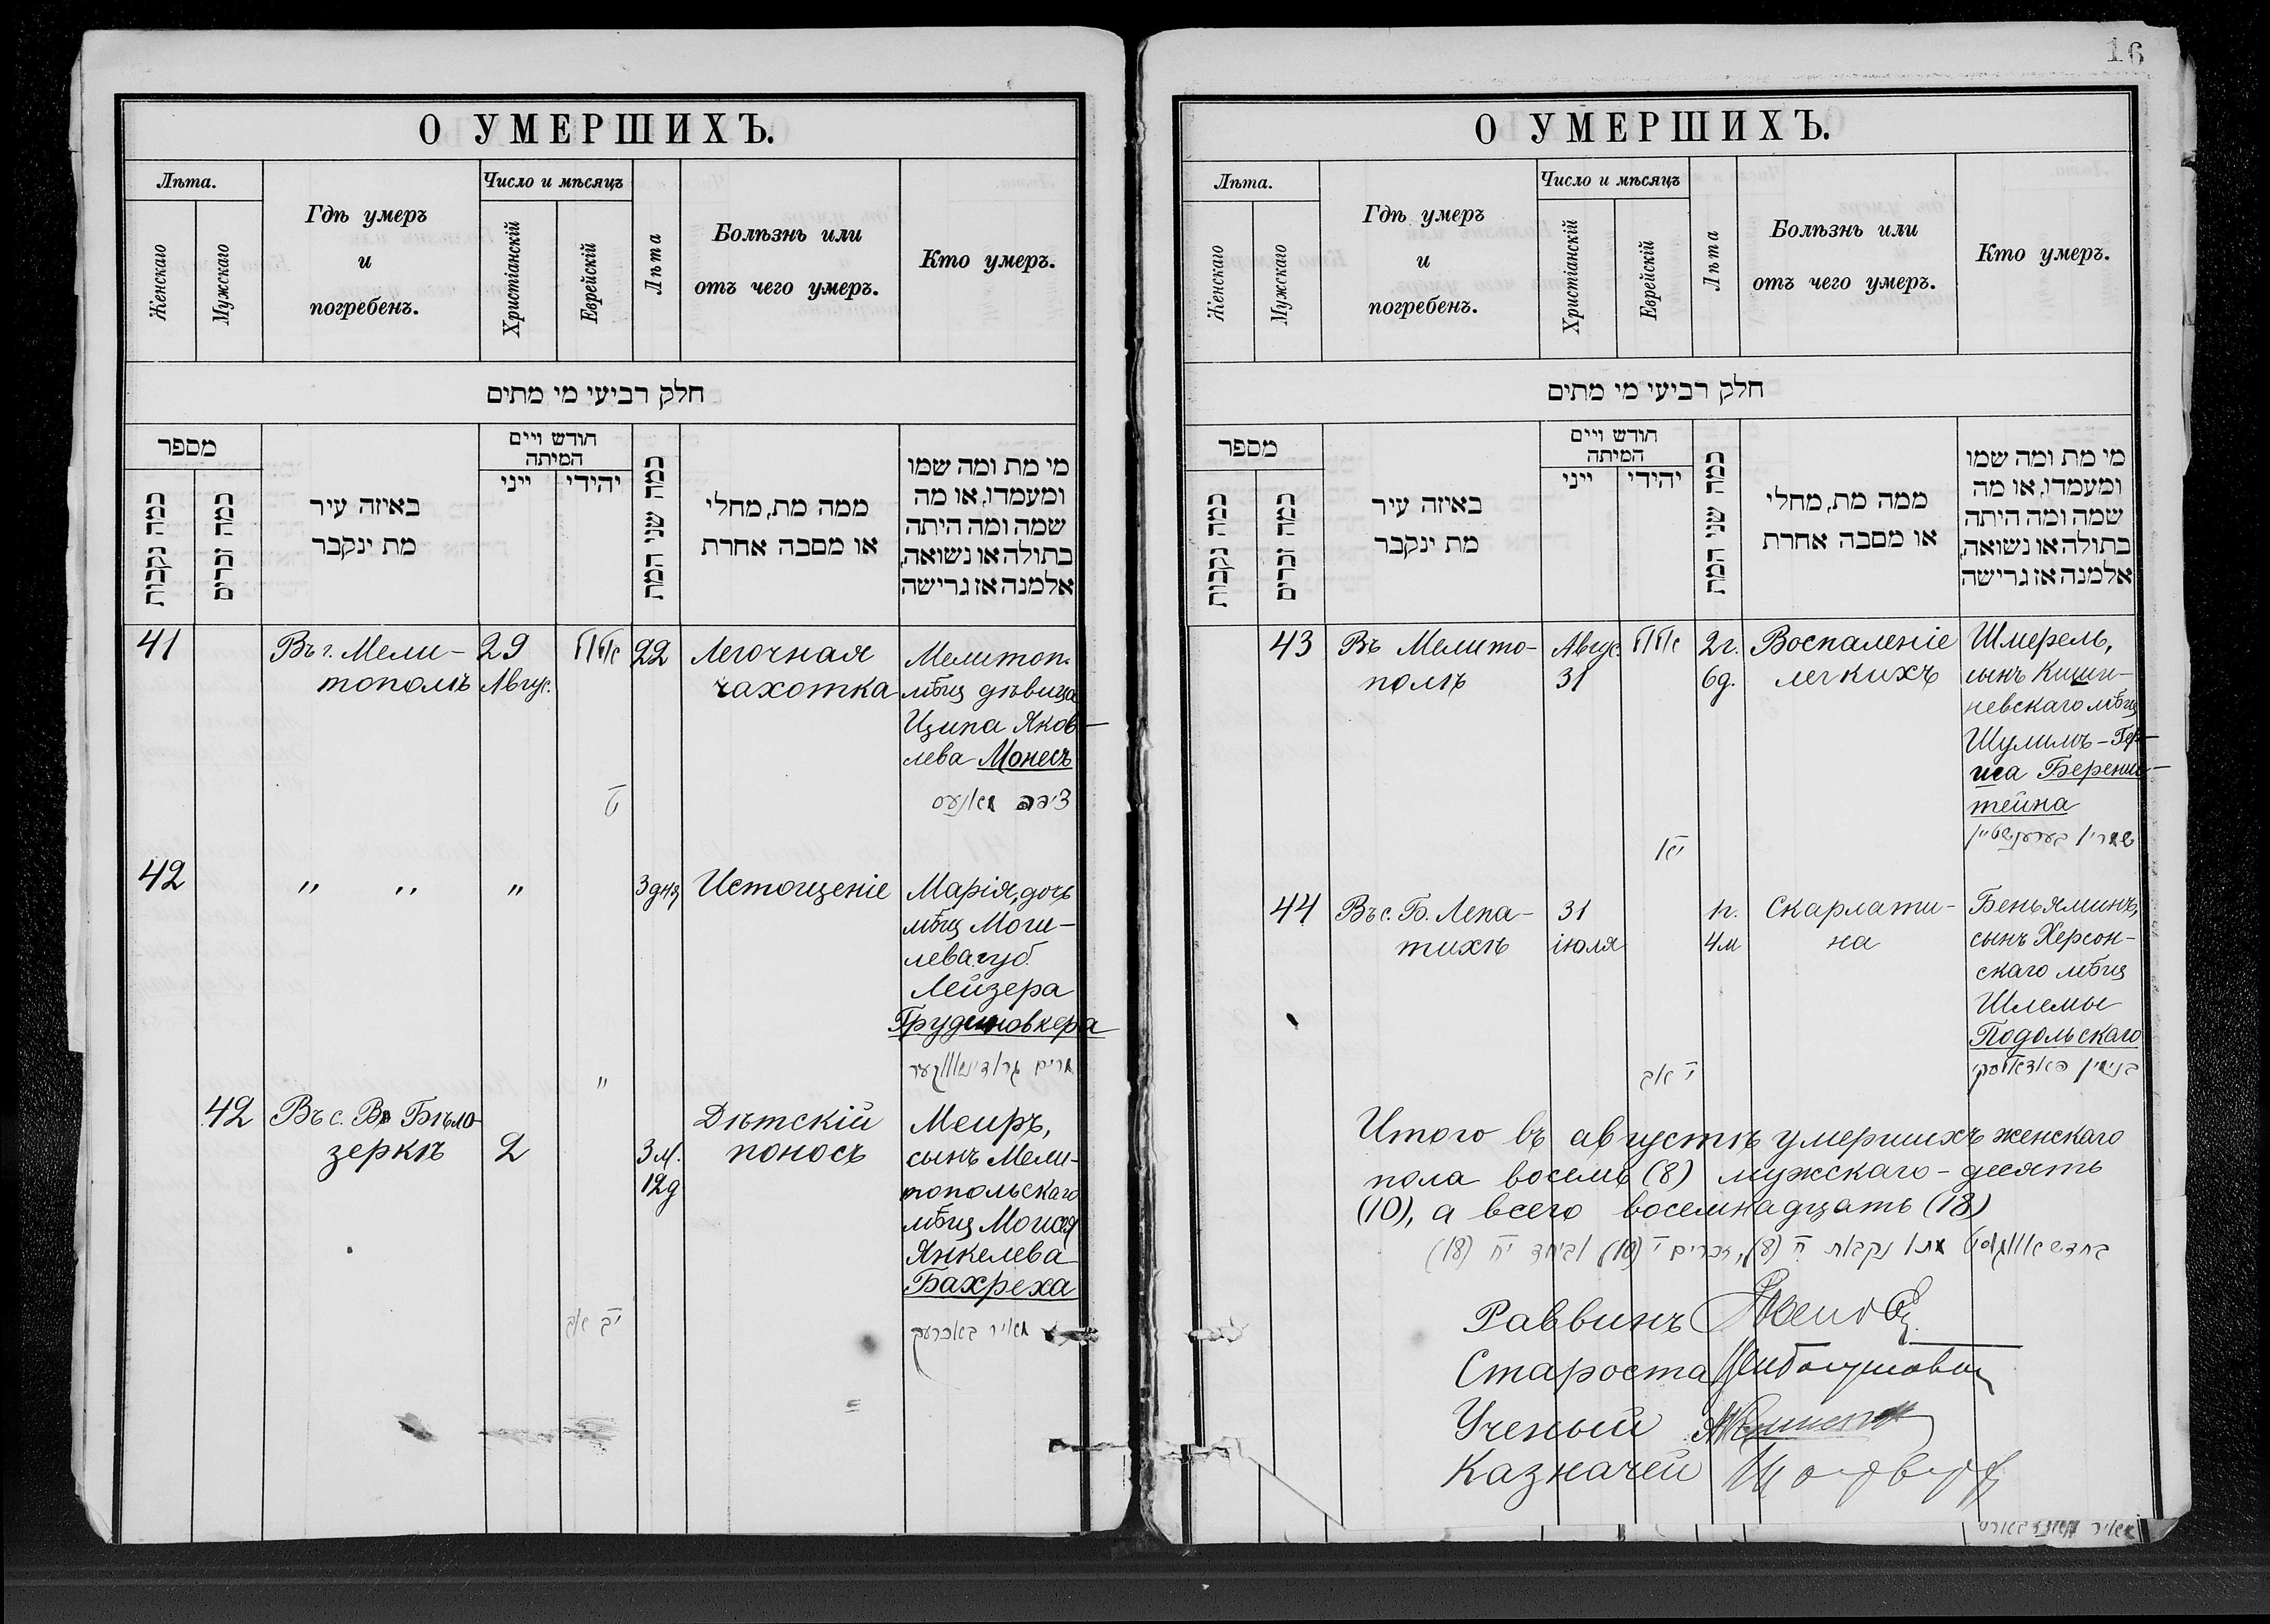 О УМЕРШИХЪ.
Лѣта.
Женскаго
Мужскаго
Гдѣ умеръ
и
погребенъ.
Число и мѣсяцъ
Христіанскій
Еврейскій
Лѣта
Болѣзнь или
отъ чего умеръ.
Кто умеръ.
חלק רביעי מי מתים
מספר
כמה נקבות
כמה זכרים
באיזה עיר
מת ינקבר
חודש ויים
המיתה
ייני
יהידי
כמה שני המת
ממה מת, מחלי
או מסבה אחרת
מי מת ומה שמו
ומעמדו, או מה
שמה ומה היתה
בתולה או נשואה,
אלמנה אז גרישה
41
Въ г. Мели-
тополѣ
29
Авгус.
22
Легочная
чахотка
Мелитоп.
мѣщ дѣвица
Ципа Яков-
лева Монесъ
ציפה מאנעס
42
" " "
3 дня
Истощеніе
Марія, дочь
мѣщ Моги-
лев. губ.
Лейзера
Грудиновкера
"
42
Въ с. Бѣло-
зеркѣ
2
3 м.
12 д
Дѣтскій
поносъ
Меиръ,
сынъ Мели-
топольскаго
мѣщ Моисея
Янкелева
Бахреха
י״ב אב
מאיר באכרעך
16
О УМЕРШИХЪ.
Лѣта.
Женскаго
Мужскаго
Гдѣ умеръ
и
погребенъ.
Число и мѣсяцъ
Христіанскій
Еврейскій
Лѣта
Болѣзнь или
отъ чего умеръ.
Кто умеръ.
חלק רביעי מי מתים
מספר
כמה נקבות
כמה זכרים
באיזה עיר
מת ינקבר
חודש ויים
המיתה
ייני
יהידי
כמה שני המת
ממה מת, מחלי
או מסבה אחרת
מי מת ומה שמו
ומעמדו, או מה
שמה ומה היתה
בתולה או נשואה,
אלמנה אז גרישה
43
Въ Мелито-
полѣ
Авгус.
31
2 г.
6 д.
Воспаленіе
легкихъ
Шмерель,
сынъ Кишин-
невскаго мѣщ
Шулимъ-Гер-
иса Беренш-
тейна
44
Въ с. Б. Лепа-
тихѣ
31
іюля
1 г.
4 м
Скарлати-
на
Беньяминъ,
сынъ Херсон-
скаго мѣщ
Шлемы
Подольскаго
י׳ אב
בנימין פאדאלסקי
Итого въ августѣ умершихъ женскаго
пола восемь (8) мужскаго - десять
(10), а всего восемнадцать (18)
בחדש אווגוסט מתו נקבות ח׳ (8), זכרים י׳ (10) וביחד י״ח (18)
Раввинъ
Староста
Ученый
Казначей